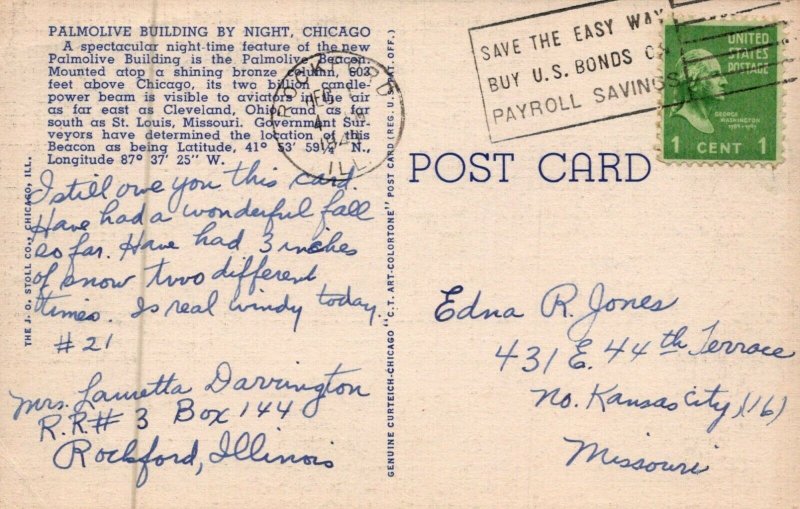 PALMOLIVE BUILDING BY NIGHT, CHICAGO
A spectacular night-time feature of the new
Palmolive Building is the Palmolive Beacon.
Mounted atop a shining bronze column, 603
feet above Chicago, its two billion candle-
power beam is visible to aviators in the air
as far east as Cleveland, Ohio and as far
south as St. Louis, Missouri. Government Sur-
veyors have determined the location of this
Beacon as being Latitude, 41° 53' 59¼" N.,
Longitude 87° 37' 25" W.
THE J. O. STOLL CO., CHICAGO, ILL.
I still owe you this card.
Have had a wonderful fall
so far. Have had 3 inches
of snow two different
times. Is real windy today.
#21
Mrs. Lauretta Darrington
R.R.# 3 Box 144
Rockford, Illinois
GENUINE CURTEICH-CHICAGO "C.T. ART-COLORTONE" POST CARD (REG. U.S. PAT. OFF.)
ROCKFORD
DEC
4
ILL.
SAVE THE EASY WAY
BUY U.S. BONDS ON
PAYROLL SAVINGS
UNITED
STATES
POSTAGE
GEORGE
WASHINGTON
1 CENT 1
POST CARD
Edna R. Jones
431 E. 44th Terrace
No. Kansas City (16)
Missouri